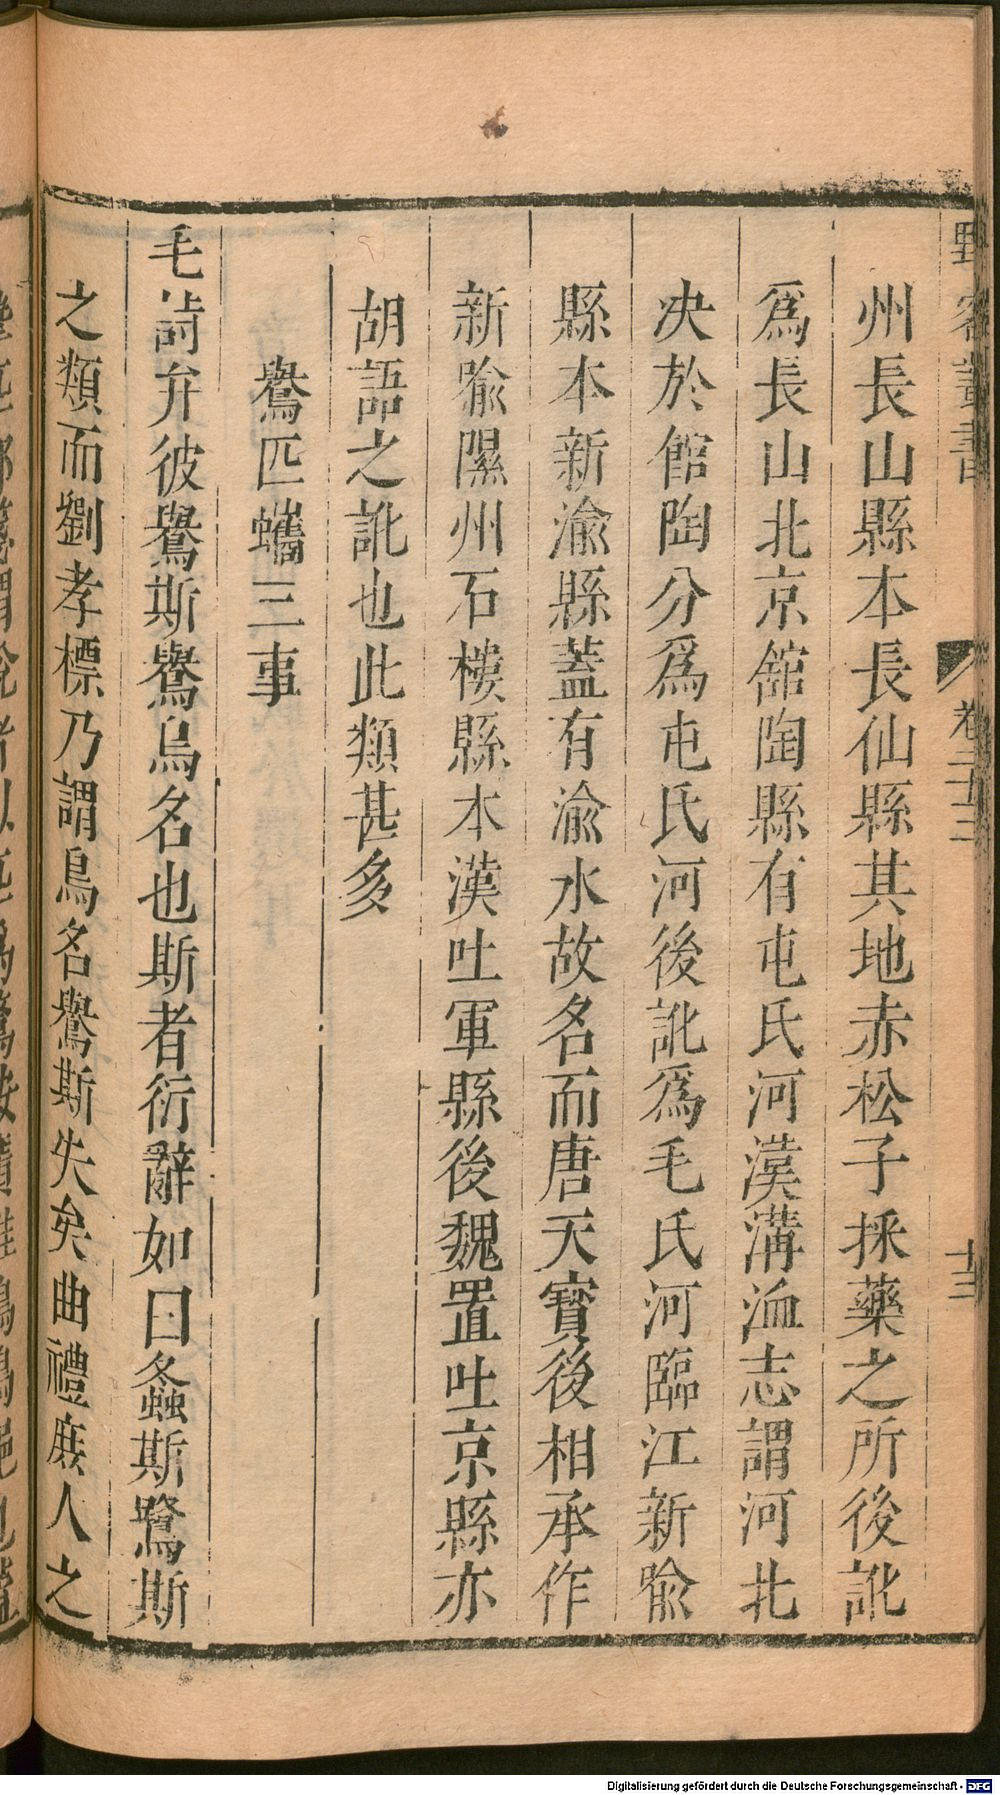 野客叢書 卷二十三 十三
州長山縣本長仙縣其地赤松子採藥之所後訛
爲長山北京舘陶縣有屯氏河漢溝洫志謂河北
决於館陶分爲屯氏河後訛爲毛氏河臨江新喻
縣本新渝縣蓋有渝水故名而唐天寶後相承作
新喻隰州石樓縣本漢吐軍縣後魏置吐京縣亦
胡語之訛也此類甚多
鸒匹蠵三事
毛詩弁彼鸒斯鸒烏名也斯者衍辭如曰螽斯鷺斯
之類而劉孝標乃謂鳥名鸒斯失矣曲禮庶人之
Digitalisierung gefördert durch die Deutsche Forschungsgemeinschaft - DFG